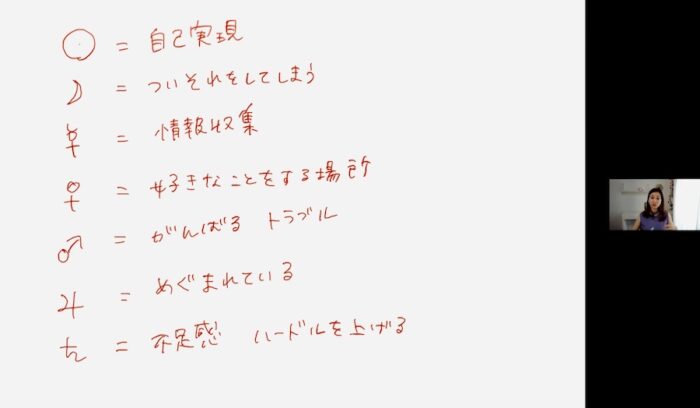 ☉ = 自己実現
☽ = ついそれをしてしまう
☿ = 情報収集
♀ = 好きなことをする場所
♂ = がんばる トラブル
♃ = めぐまれている
♄ = 不足感 ハードルを上げる